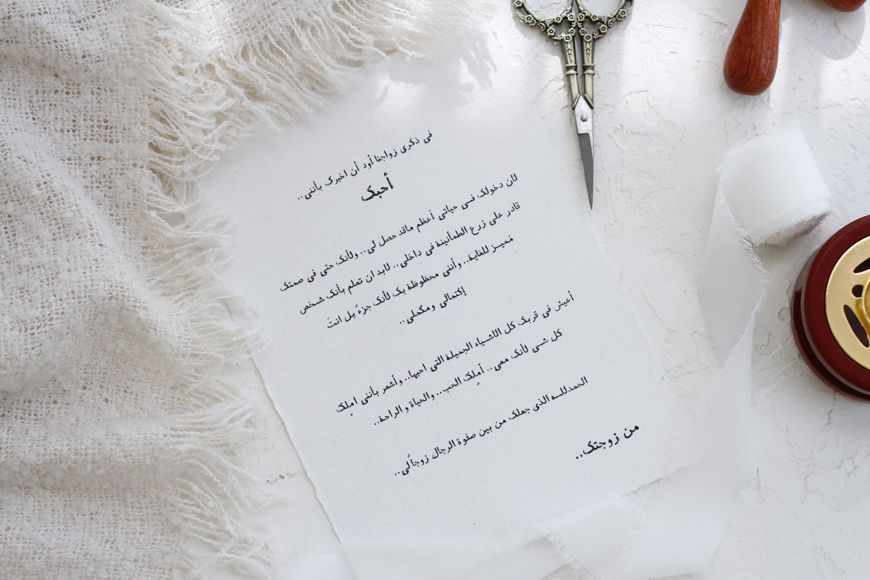 في ذكرى زواجنا أود أن اخبرك بأنني..
أحبك
لان دخولك فسي حياتي أعظم ماقد حصل لي.. ولأنك حتى في صمتك
قادر على زرع الطمأنينة في داخلي.. لابد ان تعلم بأنك شخص
مُميز للغاية.. وأنني محظوظة بك لأنك جزءٌ بل انتَ
إكتمالي ومكملي..
أعيش في قربك كل الاشياء الجميلة التي احبها.. وأشعر بأنني املك
كل شي لأنك معي.. أملك الحب.. والحياة و الراحة..
الحمدلله الذي جعلك من بين صفوة الرجال زوجاً لي..
من زوجتك..